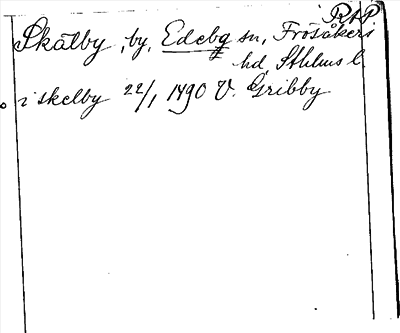 RAP
Skälby, by, Edebo sn, Frösåkers
hd, Sthlms l.
i skelby 22/1 1490 V. Gribby